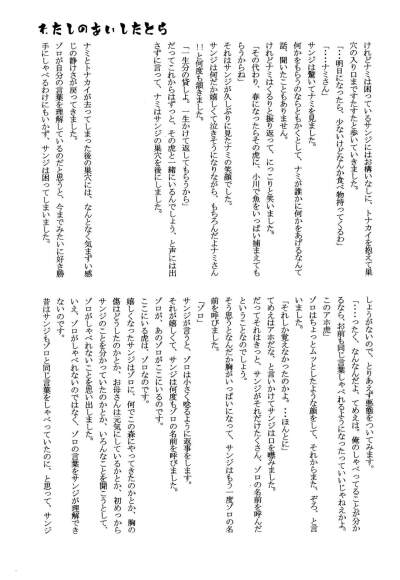 わたしのあいしたとら
けれどナミは困っているサンジにはお構いなしに、トナカイを抱えて巣
穴の入り口まですたすたと歩いていきました。
「・・明日になったら、少ないけどなんか食べ物持ってくるわ」
「・・ナミさん」
サンジは驚いてナミを見ました。
何かをもらうのならともかくとして、ナミが誰かに何かをあげるなんて
話、聞いたこともありません。
けれどナミはくるりと振り返って、にっこりと笑いました。
「その代わり、春になったらその虎に、小川で魚をいっぱい捕まえても
らうからね」
それはサンジが久しぶりに見たナミの笑顔でした。
サンジは何だか嬉しくて泣きそうになりながら、もちろんだよナミさん
!!と何度も頷きました。
「一生分の貸しよ。一生かけて返してもらうから」
だってこれからはずっと、その虎と一緒にいるんでしょう、と声には出
さずに言って、ナミはサンジの巣穴を後にしました。
ナミとトナカイが去ってしまった後の巣穴には、なんとなく気まずい感
じの静けさが戻ってきました。
ゾロが自分の言葉を理解しているのだと思うと、今までみたいに好き勝
手にしゃべるわけにもいかず、サンジは困ってしまいました。
しようがないので、とりあえず悪態をついてみます。
「・・ったく、なんなんだよ、てめえは。俺のしゃべってることが分か
るなら、お前も同じ言葉しゃべれるようになったっていいじゃねえかよ。
このアホ虎」
ゾロはちょっとムッとしたような顔をして、それからまた、ぞろ、と言
いました。
「それしか覚えなかったのかよ。・・ほんとに」
てめえはアホだな、と言いかけてサンジは口を噤みました。
だってそれはきっと、サンジがそれだけたくさん、ゾロの名前を呼んだ
ということなのでしょう。
そう思うとなんだか胸がいっぱいになって、サンジはもう一度ゾロの名
前を呼びました。
「ゾロ」
サンジが言うと、ゾロは小さく唸るように返事をします。
それが嬉しくて、サンジは何度もゾロの名前を呼びました。
ゾロが、あのゾロがここにいるのです。
ここにいる虎は、ゾロなのです。
嬉しくなったサンジはゾロに、何でこの森にやってきたのかとか、胸の
傷はどうしたのかとか、お母さんは元気にしているかとか、初めっから
サンジのことを分かっていたのかとか、いろんなことを聞こうとして、
ゾロがしゃべれないことを思い出しました。
いえ、ゾロがしゃべれないのではなく、ゾロの言葉をサンジが理解でき
ないのです。
昔はサンジもゾロと同じ言葉をしゃべっていたのに、と思って、サンジ